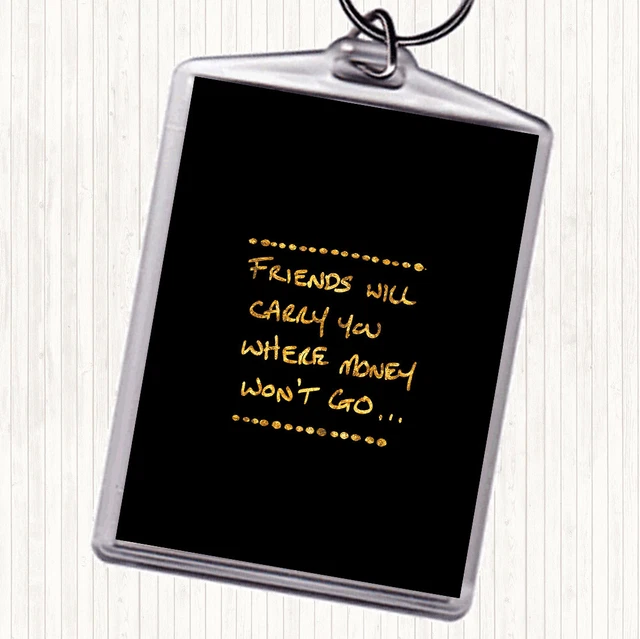 FRIENDS WILL
CARRY YOU
WHERE MONEY
WON'T GO...